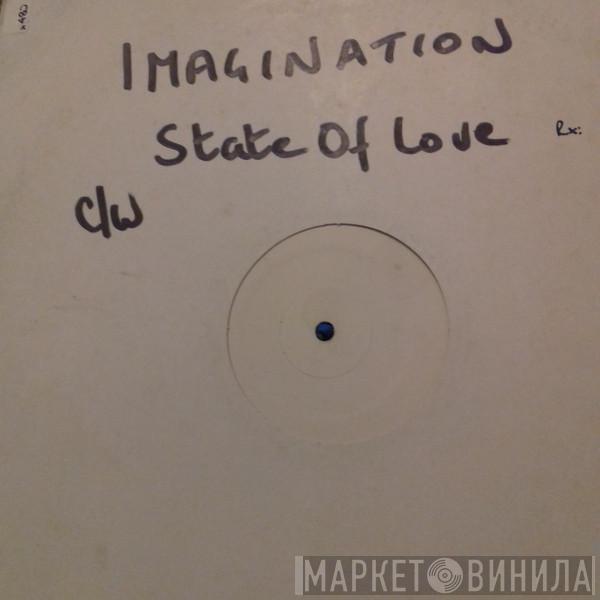 IMAGINATION
State Of Love
Rx:
c/w
МАРКЕТ ВИНИЛА